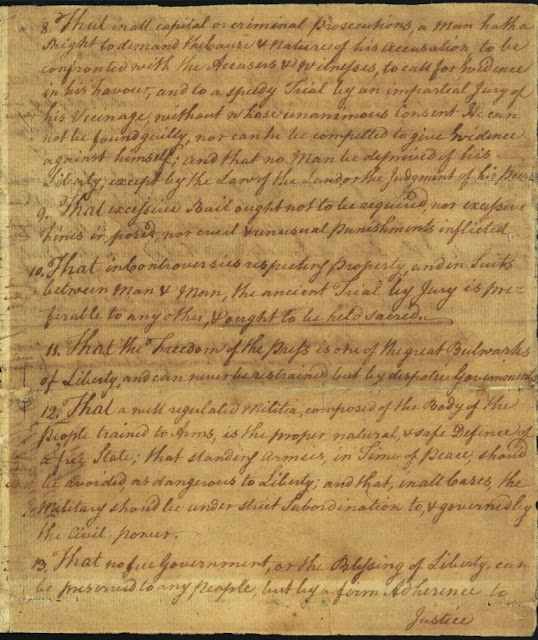 8. That in all capital or criminal Prosecutions, a Man hath a
Right to demand the Cause & Nature of his Accusation, to be
confronted with the Accusers & Witnesses, to call for Evidence
in his Favour, and to a speedy Trial by an impartial Jury of
his Vicenage, without whose unanimous Consent He can
not be found guilty, nor can he be compelled to give Evidence
against himself; and that no Man be deprived of his
Liberty, except by the Law of the Land, or the Judgment of his Peers.
9. That excessive Bail ought not to be required, nor excessive
Fines imposed, nor cruel & unusual Punishments inflicted.
10. That in Controversies respecting Property, and in Suits
between Man & Man, the ancient Trial by Jury is pre-
ferable to any other, & ought to be held sacred.
11. That the Freedom of the Press is one of the great Bulwarks
of Liberty, and can never be restrained but by despotic Governments.
12. That a well regulated Militia, composed of the Body of the
People trained to Arms, is the proper, natural, & safe Defence of
a free State; that standing Armies, in Time of Peace, should
be avoided, as dangerous to Liberty; and that, in all Cases, the
Military should be under strict Subordination to, & governed by
the Civil power.
13. That no free Government, or the Blessing of Liberty, can
be preserved to any People, but by a firm Adherence to
Justice